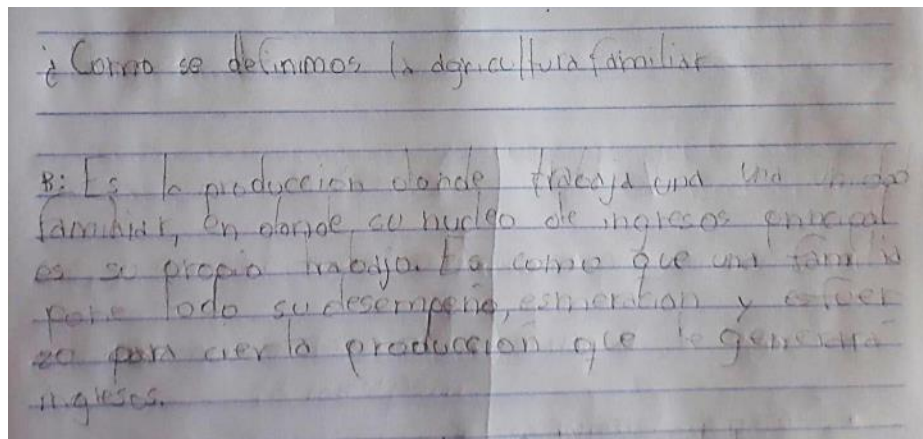 ¿Como se definimos la agricultura familiar
R: Es la produccion donde trabaja una una
familiar, en donde, su nucleo de ingresos principal
es su propio trabajo. Es como que una familia
pone todo su desempeño, esmeracion y esfuer
zo para cierta produccion que le generara
ingresos.